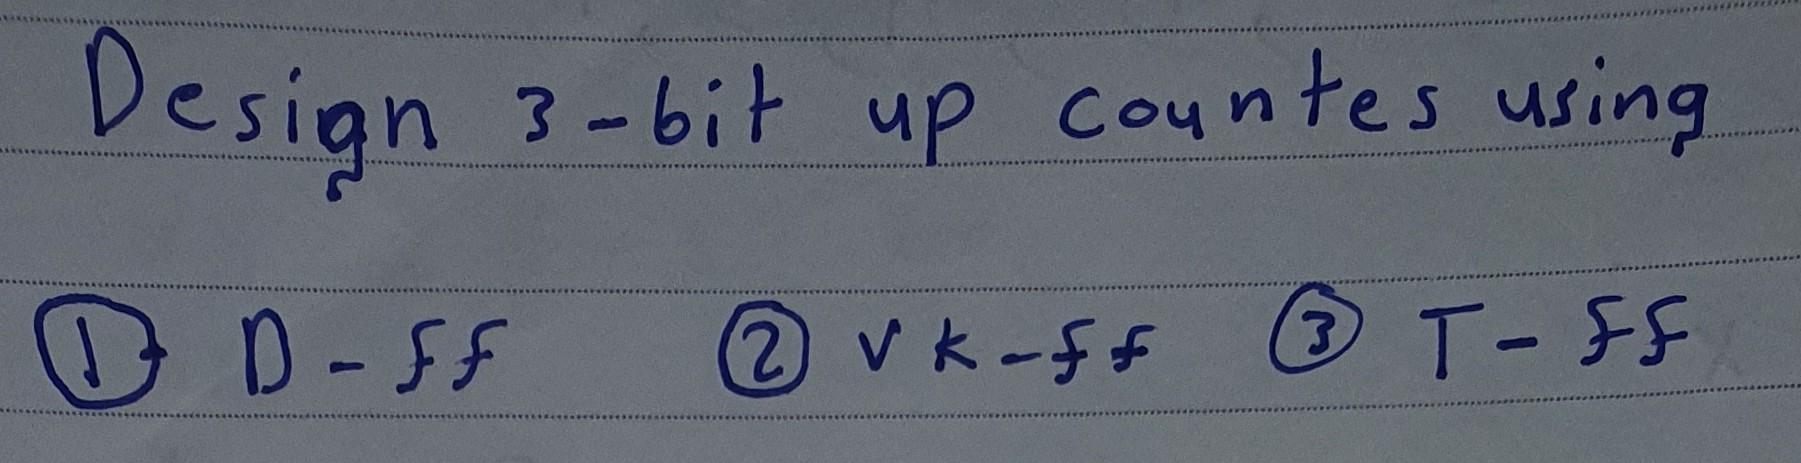 Design 3-bit up countes using
① D-ff ② VK-ff ③ T-ff